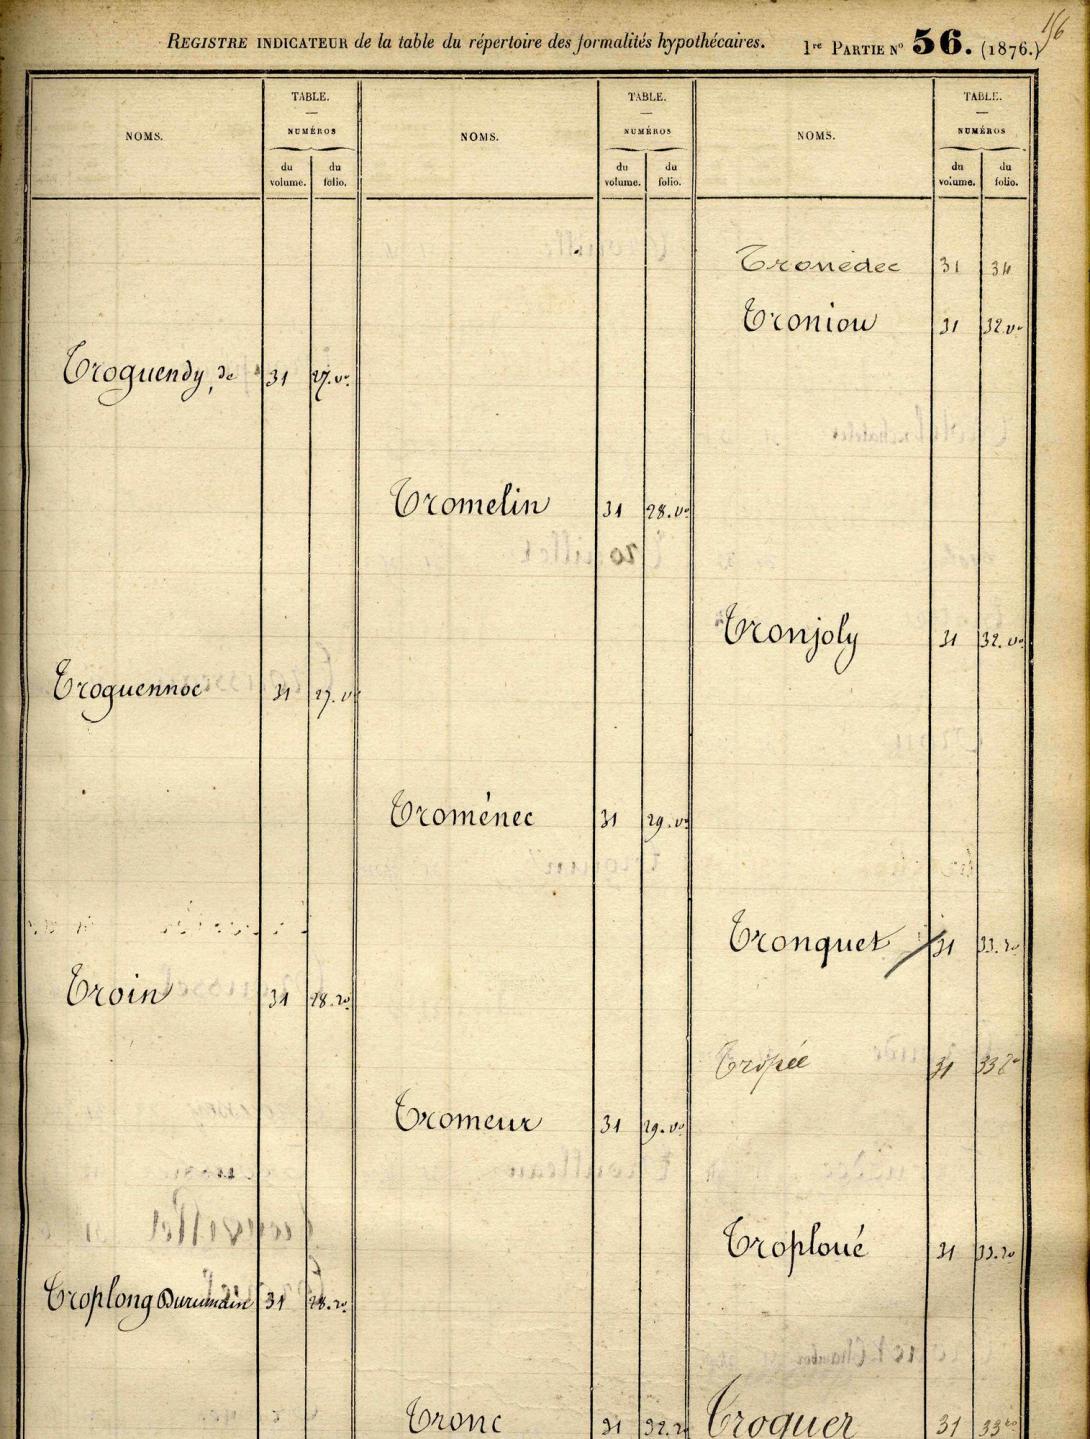 REGISTRE INDICATEUR de la table du répertoire des formalités hypothécaires. 1re PARTIE No 56. (1876.) 156
NOMS. TABLE. NUMÉROS du volume. du folio.
NOMS. TABLE. NUMÉROS du volume. du folio.
NOMS. TABLE. NUMÉROS du volume. du folio.
Troguendy, de 31 27. vo
Troguennoc 31 27. vo
Troin 31 28. ro
Troplong Durumain 31 28. ro
Tromelin 31 28. vo
Troménec 31 29. vo
Tromeur 31 29. vo
Tronc 31 32. ro
Tronédec 31 34
Troniou 31 32. vo
Tronjoly 31 32. vo
Tronquet 31 33. ro
Tropée 31 33 ro
Troploué 31 33. ro
Troquer 31 33 ro